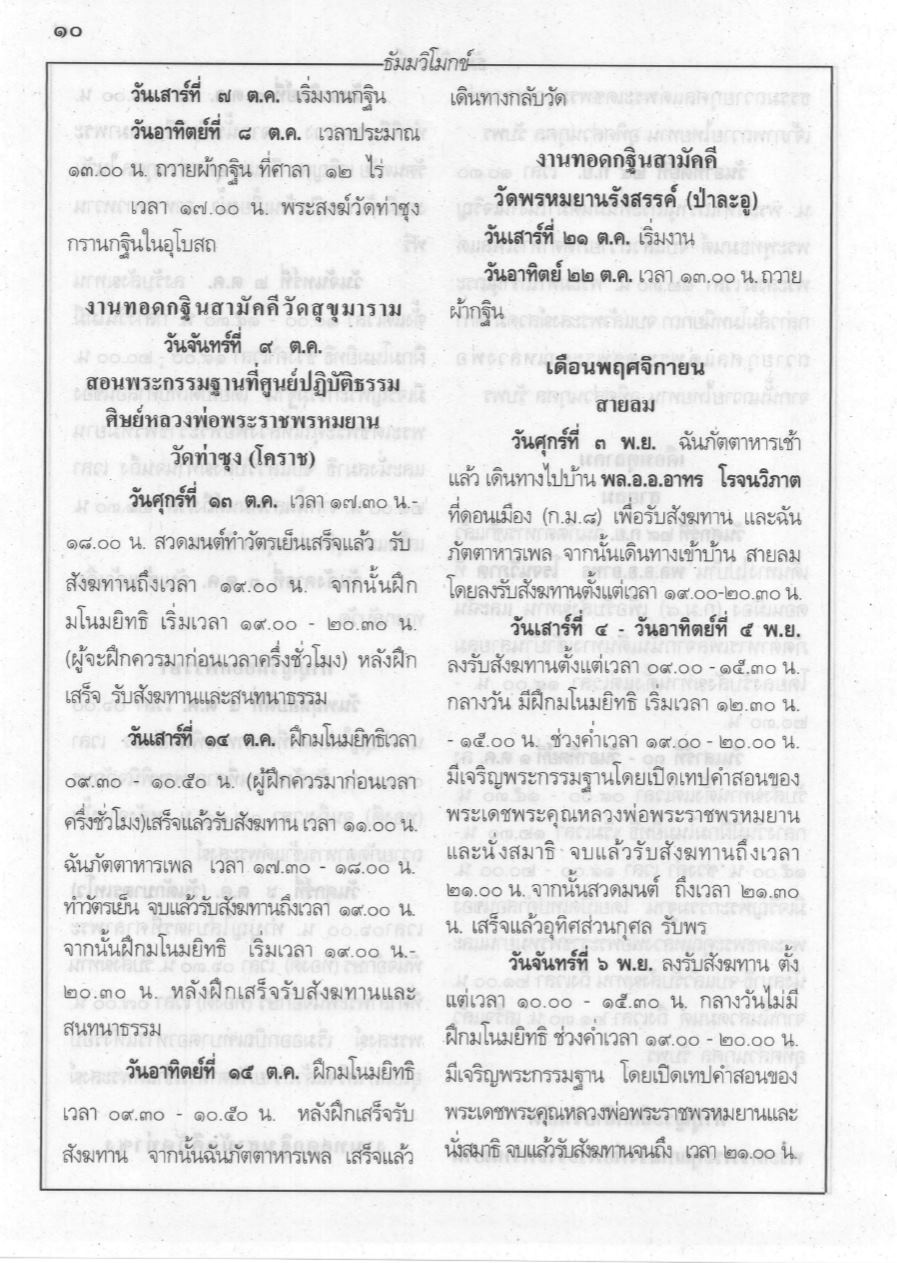 ๑๐
ธัมมวิโมกข์
วันเสาร์ที่ ๗ ต.ค. เริ่มงานกฐิน
วันอาทิตย์ที่ ๘ ต.ค. เวลาประมาณ
๑๓.๐๐ น. ถวายผ้ากฐิน ที่ศาลา ๑๒ ไร่
เวลา ๑๗.๐๐ น. พระสงฆ์วัดท่าซุง
กรานกฐินในอุโบสถ
งานทอดกฐินสามัคคีวัดสุขุมาราม
วันจันทร์ที่ ๙ ต.ค.
สอนพระกรรมฐานที่ศูนย์ปฏิบัติธรรม
ศิษย์หลวงพ่อพระราชพรหมยาน
วัดท่าซุง (โคราช)
วันศุกร์ที่ ๑๓ ต.ค. เวลา ๑๗.๓๐ น.-
๑๘.๐๐ น. สวดมนต์ทำวัตรเย็นเสร็จแล้ว รับ
สังฆทานถึงเวลา ๑๙.๐๐ น. จากนั้นฝึก
มโนมยิทธิ เริ่มเวลา ๑๙.๐๐ - ๒๐.๓๐ น.
(ผู้จะฝึกควรมาก่อนเวลาครึ่งชั่วโมง) หลังฝึก
เสร็จ รับสังฆทานและสนทนาธรรม
วันเสาร์ที่ ๑๔ ต.ค. ฝึกมโนมยิทธิเวลา
๐๙.๓๐ - ๑๐.๕๐ น. (ผู้ฝึกควรมาก่อนเวลา
ครึ่งชั่วโมง)เสร็จแล้วรับสังฆทาน เวลา ๑๑.๐๐ น.
ฉันภัตตาหารเพล เวลา ๑๗.๓๐ - ๑๘.๐๐ น.
ทำวัตรเย็น จบแล้วรับสังฆทานถึงเวลา ๑๙.๐๐ น.
จากนั้นฝึกมโนมยิทธิ เริ่มเวลา ๑๙.๐๐ น.-
๒๐.๓๐ น. หลังฝึกเสร็จรับสังฆทานและ
สนทนาธรรม
วันอาทิตย์ที่ ๑๕ ต.ค. ฝึกมโนมยิทธิ
เวลา ๐๙.๓๐ - ๑๐.๕๐ น. หลังฝึกเสร็จรับ
สังฆทาน จากนั้นฉันภัตตาหารเพล เสร็จแล้ว
เดินทางกลับวัด
งานทอดกฐินสามัคคี
วัดพรหมยานรังสรรค์ (ป่าละอู)
วันเสาร์ที่ ๒๑ ต.ค. เริ่มงาน
วันอาทิตย์ ๒๒ ต.ค. เวลา ๑๓.๐๐ น. ถวาย
ผ้ากฐิน
เดือนพฤศจิกายน
สายลม
วันศุกร์ที่ ๓ พ.ย. ฉันภัตตาหารเช้า
แล้ว เดินทางไปบ้าน พล.อ.อ.อาทร โรจนวิภาต
ที่ดอนเมือง (ก.ม.๘) เพื่อรับสังฆทาน และฉัน
ภัตตาหารเพล จากนั้นเดินทางเข้าบ้าน สายลม
โดยลงรับสังฆทานตั้งแต่เวลา ๑๙.๐๐-๒๐.๓๐ น.
วันเสาร์ที่ ๔ - วันอาทิตย์ที่ ๕ พ.ย.
ลงรับสังฆทานตั้งแต่เวลา ๐๙.๐๐ - ๑๕.๓๐ น.
กลางวัน มีฝึกมโนมยิทธิ เริ่มเวลา ๑๒.๓๐ น.
- ๑๕.๐๐ น. ช่วงค่ำเวลา ๑๙.๐๐ - ๒๐.๐๐ น.
มีเจริญพระกรรมฐานโดยเปิดเทปคำสอนของ
พระเดชพระคุณหลวงพ่อพระราชพรหมยาน
และนั่งสมาธิ จบแล้วรับสังฆทานถึงเวลา
๒๑.๐๐ น. จากนั้นสวดมนต์ ถึงเวลา ๒๑.๓๐
น. เสร็จแล้วอุทิศส่วนกุศล รับพร
วันจันทร์ที่ ๖ พ.ย. ลงรับสังฆทาน ตั้ง
แต่เวลา ๑๐.๐๐ - ๑๕.๓๐ น. กลางวันไม่มี
ฝึกมโนมยิทธิ ช่วงค่ำเวลา ๑๙.๐๐ - ๒๐.๐๐ น.
มีเจริญพระกรรมฐาน โดยเปิดเทปคำสอนของ
พระเดชพระคุณหลวงพ่อพระราชพรหมยานและ
นั่งสมาธิ จบแล้วรับสังฆทานจนถึง เวลา ๒๑.๐๐ น.